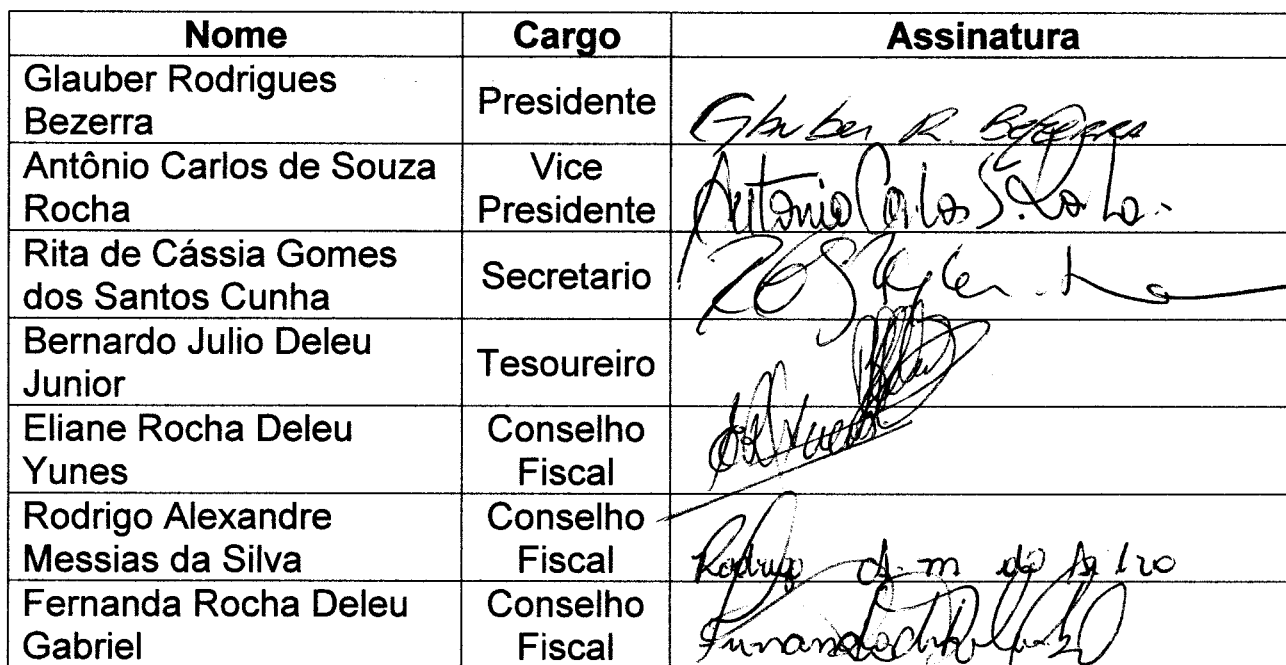 Nome Cargo Assinatura
Glauber Rodrigues
Bezerra
Presidente
Glauber R. Bezerra
Antônio Carlos de Souza
Rocha
Vice
Presidente
Antonio Carlos S. Rocha.
Rita de Cássia Gomes
dos Santos Cunha
Secretario
Bernardo Julio Deleu
Junior
Tesoureiro
Eliane Rocha Deleu
Yunes
Conselho
Fiscal
Rodrigo Alexandre
Messias da Silva
Conselho
Fiscal
Rodrigo A. m da Silva
Fernanda Rocha Deleu
Gabriel
Conselho
Fiscal
Fernanda